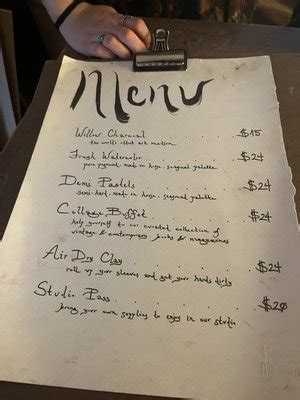 Menu
Willow Charcoal . . . $15
the world's oldest art medium
Fresh Watercolor . . . $24
pure pigment, made in house, seasonal palette
Demi Pastels . . . $24
semi-hard, made in house, seasonal palette
Collage Buffet . . . $24
help yourself to our curated collection of
vintage & contemporary books & magazines
Air Dry Clay . . . $24
roll up your sleeves and get your hands dirty
Studio Pass . . . $20
bring your own supplies to enjoy in our studio